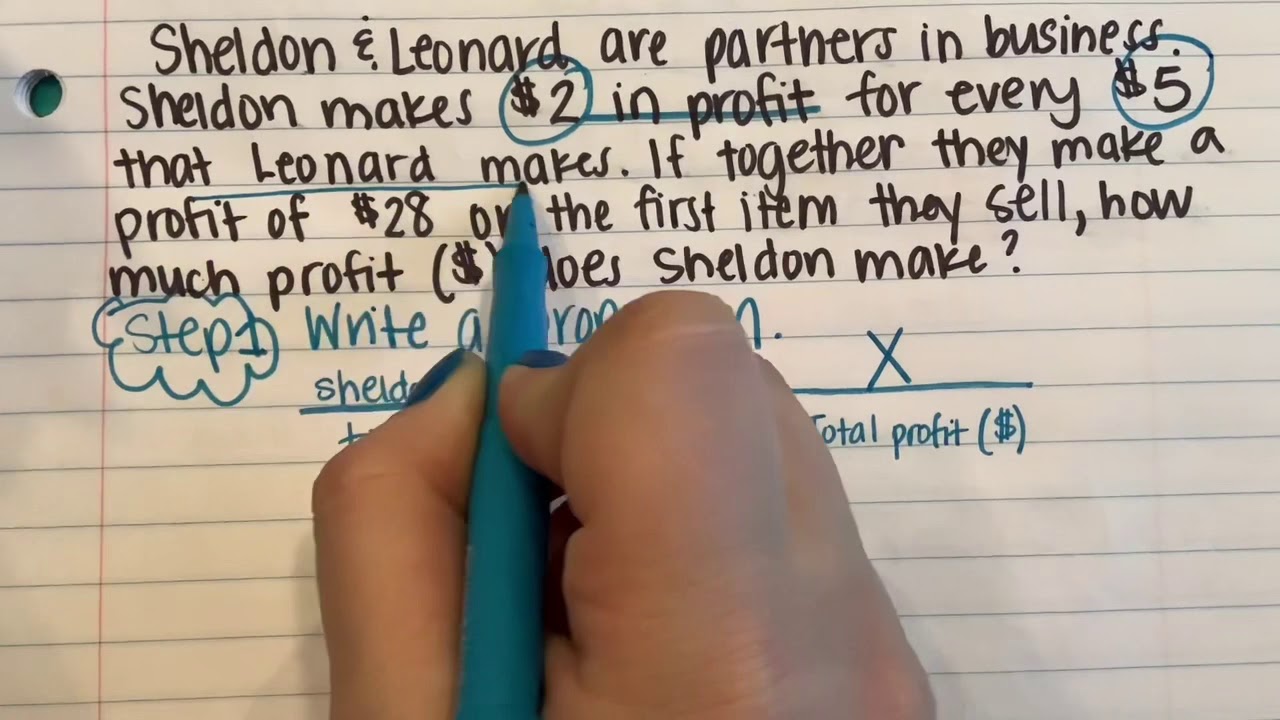 Sheldon & Leonard are partners in business.
Sheldon makes $2 in profit for every $5
that Leonard makes. If together they make a
profit of $28 on the first item they sell, how
much profit ($) does sheldon make?
Step 1 Write a
X
total profit ($)